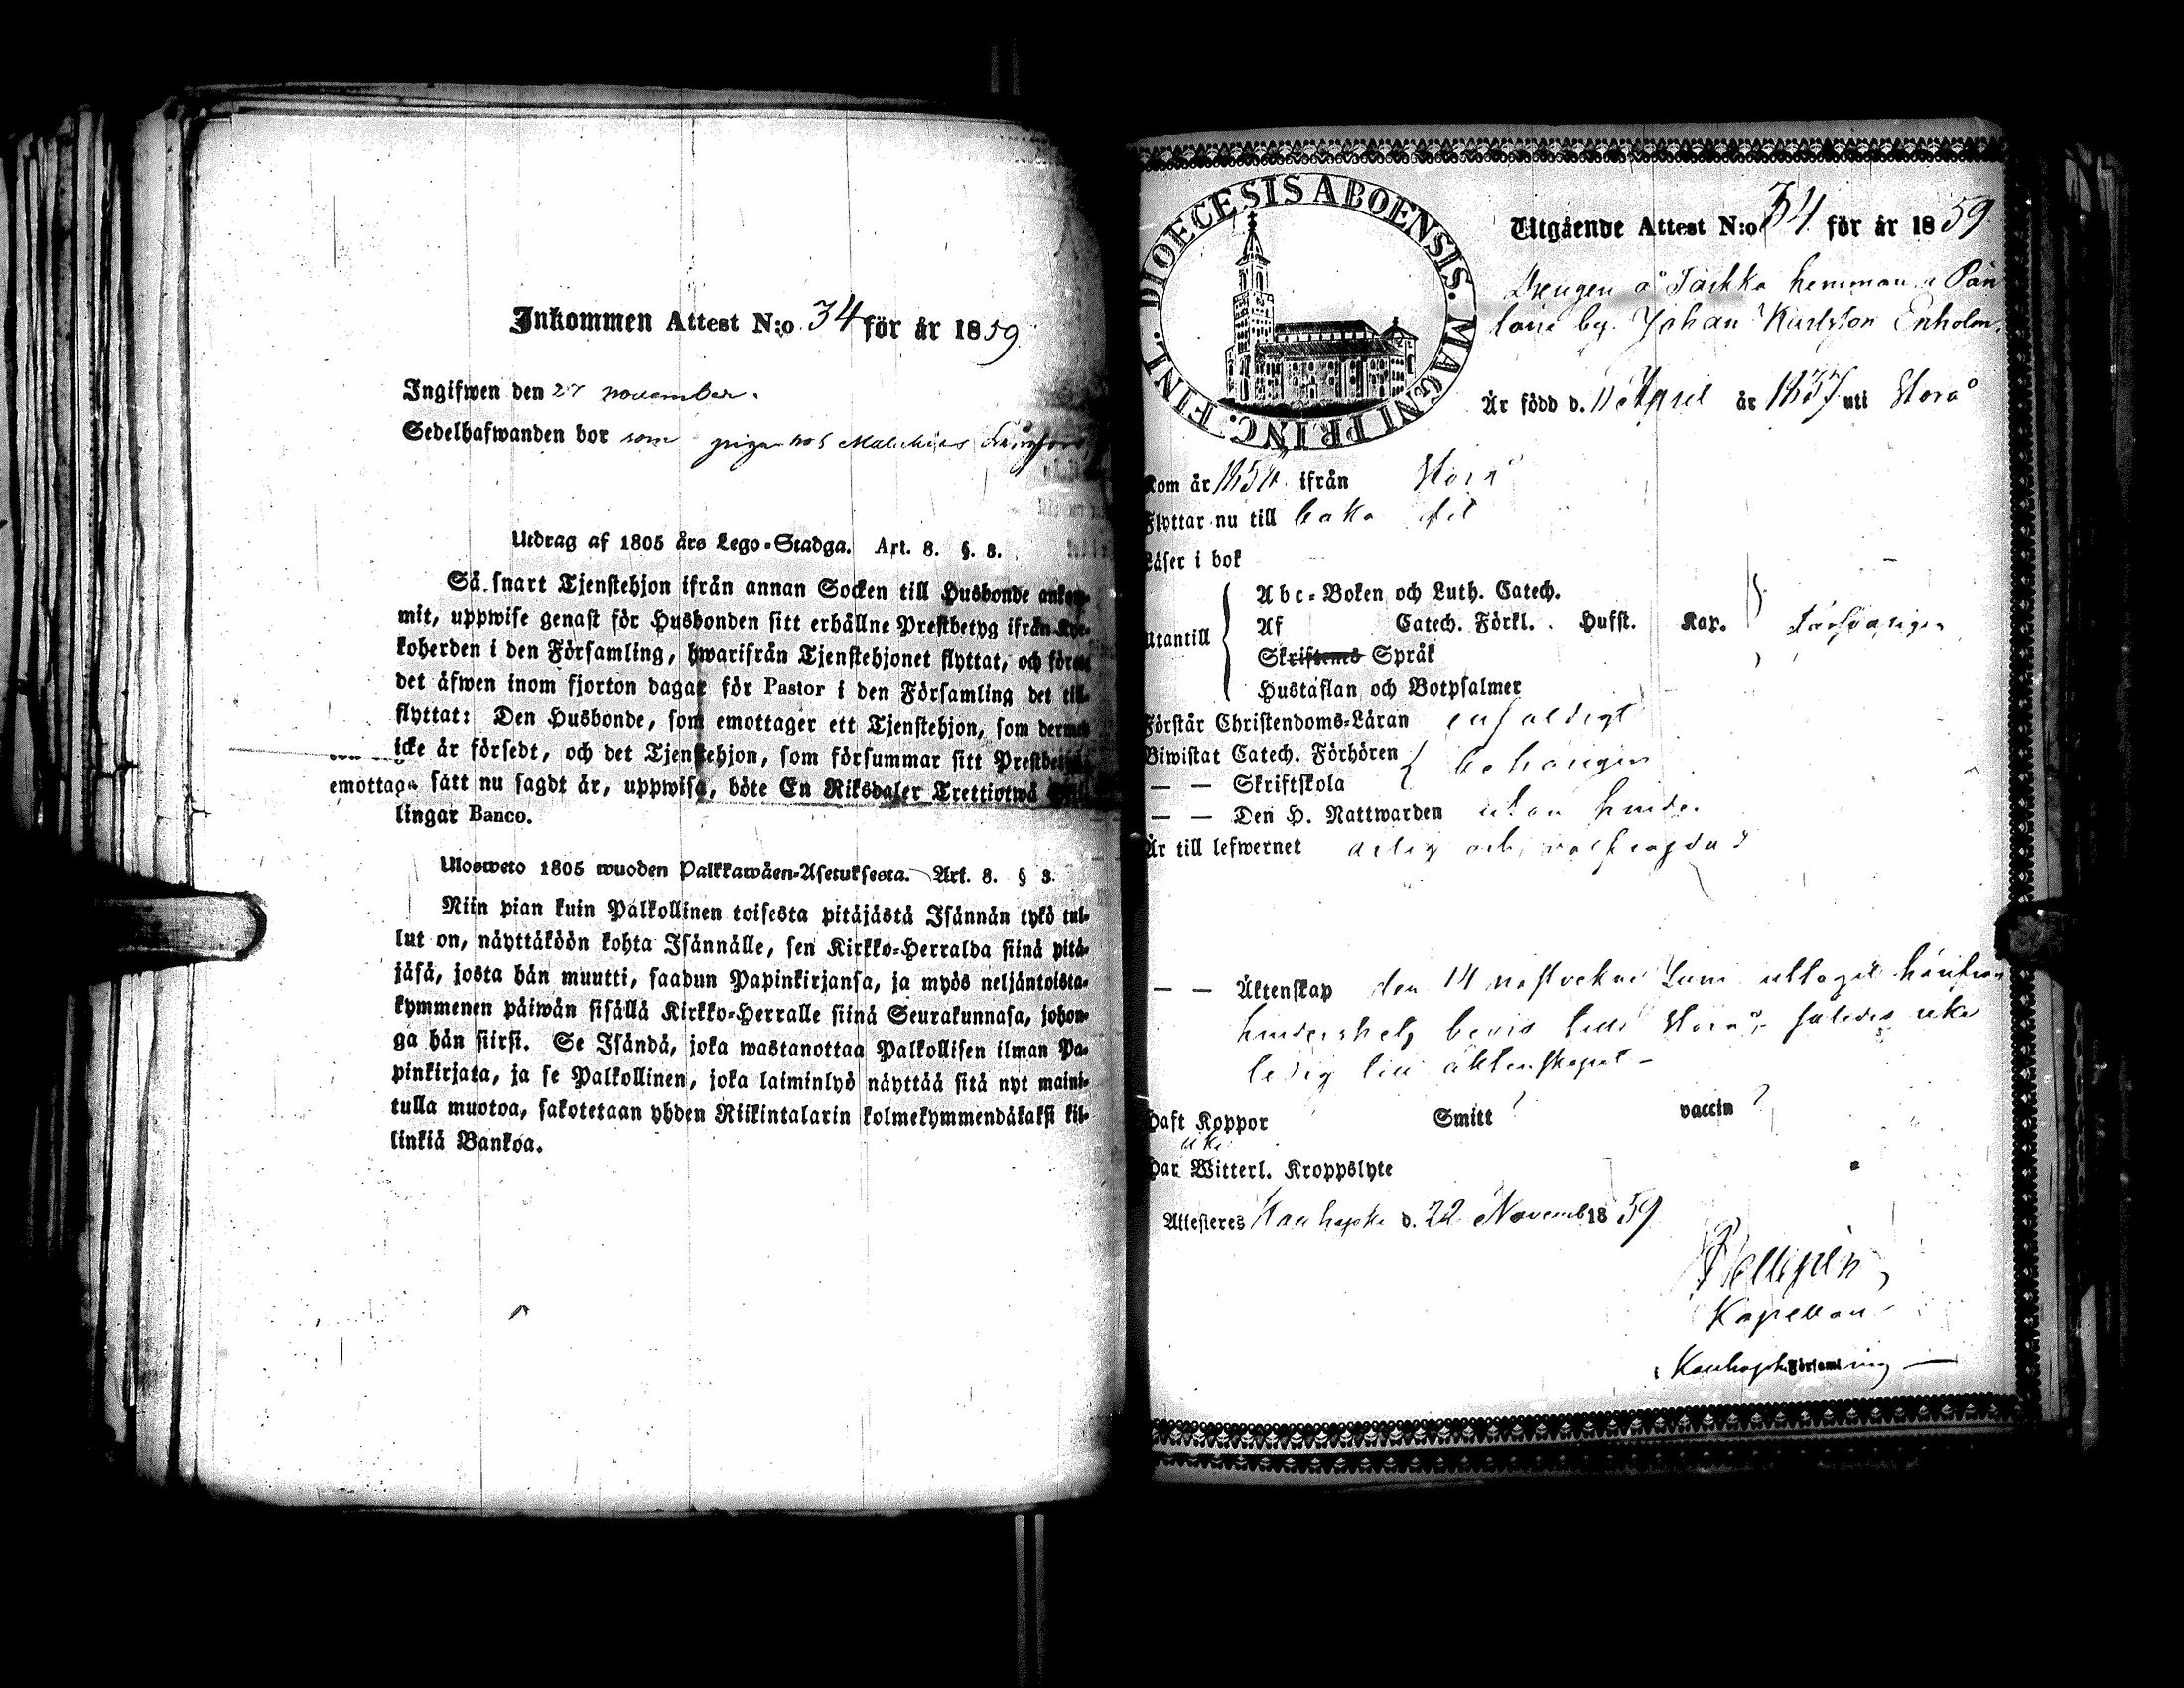 Inkommen Attest N:o 34 för år 1859
Ingifwen den 27 november.
Sedelhafwanden bor som piga hos
Utdrag af 1805 års Lego-Stadga. Art. 8. §. 8.
Så snart Tjenstehjon ifrån annan Socken till Husbonde ankom-
mit, uppwise genast för Husbonden sitt erhållne Prestbetyg ifrån Kyr-
koherden i den Församling, hwarifrån Tjenstehjonet flyttat, och förete
det äfwen inom fjorton dagar för Pastor i den Församling det till-
flyttat: Den Husbonde, som emottager ett Tjenstehjon, som dermed
icke är försedt, och det Tjenstehjon, som försummar sitt
emottaga sätt nu sagdt är, uppwisa, böte En Riksdaler Trettiotwå
lingar Banco.
Ulosweto 1805 wuoden Palkkawäen-Asetuksesta. Art. 8. § 3.
Niin pian kuin Palkollinen toisesta pitäjästä Isännän tykö tul-
lut on, näyttäköön kohta Isännälle, sen Kirkko-Herralda siinä pitä-
jäsä, josta hän muutti, saadun Papinkirjansa, ja myös neljäntoista-
kymmenen päiwän sisällä Kirkko-Herralle siinä Seurakunnasa, johon-
ga hän siirsi. Se Isändä, joka wastanottaa Palkollisen ilman Pa-
pinkirjata, ja se Palkollinen, joka laiminlyö näyttää sitä nyt maini-
tulla muotoa, sakotetaan yhden Riikintalarin kolmekymmendäkaksi kil-
linkiä Bankoa.
DIOECESIS ABOENSIS. MAGNI PRINC. FINL.
Utgående Attest N:o 34 för år 1859
Drengen å hemman i
by. Johan Karlsson Enholm,
Är född d. 11 April år 1837 uti Storå
Kom år ifrån Storå
Flyttar nu till baka dit
Läser i bok
Abc-Boken och Luth. Catech.
Utantill Af Catech. Förkl. Hufst. Kap. försvarligen
Skriftenes Språk
Hustaflan och Botpsalmer
Förstår Christendoms-Läran enfaldigt
Biwistat Catech. Förhören behörigen
— — Skriftskola
— — Den H. Nattwarden utan hinder
Är till lefwernet ärlig och välfrägdad
— — Äktenskap den 14 Juni uttagit härifrån
hinderslöshets bevis till Storå, således icke
ledig till äktenskapet —
Haft Koppor Smitt ? vaccin ?
icke
Har Witterl. Kroppslyte
Attesteres Kauhajoki d. 22 Novemb 1859
Kapellan
i Kauhajoki Församling —